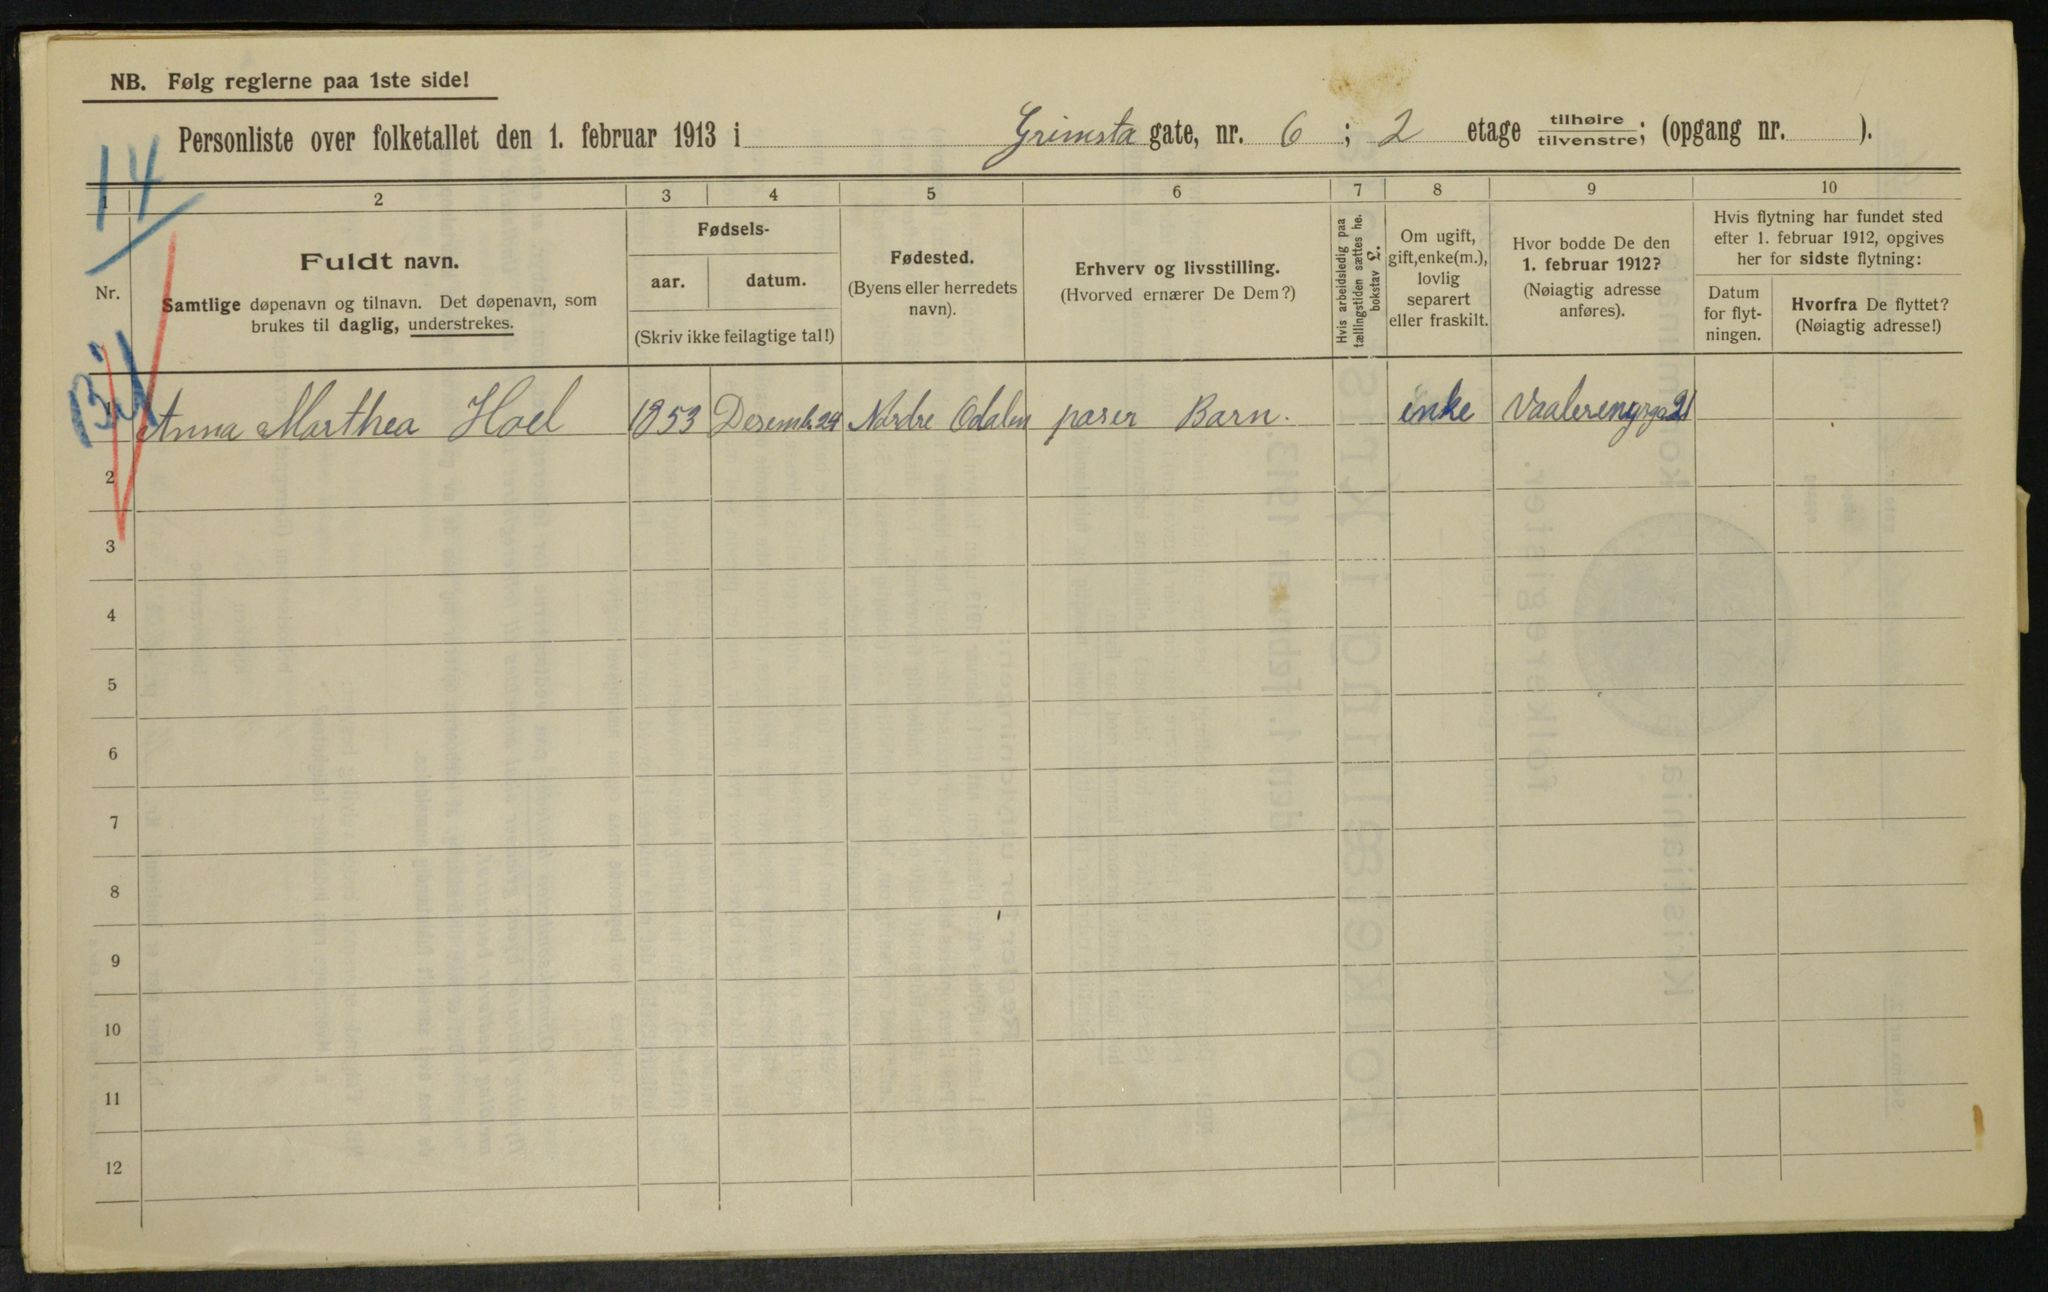 NB. Følg reglerne paa 1ste side!
Personliste over folketallet den 1. februar 1913 i Grimsta gate, nr. 6 ; 2 etage tilhøire/tilvenstre; (opgang nr. ).
14
1 2 3 4 5 6 7 8 9 10
Nr.
Fuldt navn.
Samtlige døpenavn og tilnavn. Det døpenavn, som
brukes til daglig, understrekes.
Fødsels-
aar. datum.
(Skriv ikke feilagtige tal!)
Fødested.
(Byens eller herredets
navn).
Erhverv og livsstilling.
(Hvorved ernærer De Dem?)
Hvis arbeidsledig paa
tællingstiden sættes he.
bokstav L.
Om ugift,
gift,enke(m.),
lovlig
separert
eller fraskilt.
Hvor bodde De den
1. februar 1912?
(Nøiagtig adresse
anføres).
Hvis flytning har fundet sted
efter 1. februar 1912, opgives
her for sidste flytning:
Datum
for flyt-
ningen.
Hvorfra De flyttet?
(Nøiagtig adresse!)
1 Anna Marthea Hoel 1853 Desemb. 24 Nordre Odalen paser Barn. enke Vaalerengga 21
2
3
4
5
6
7
8
9
10
11
12